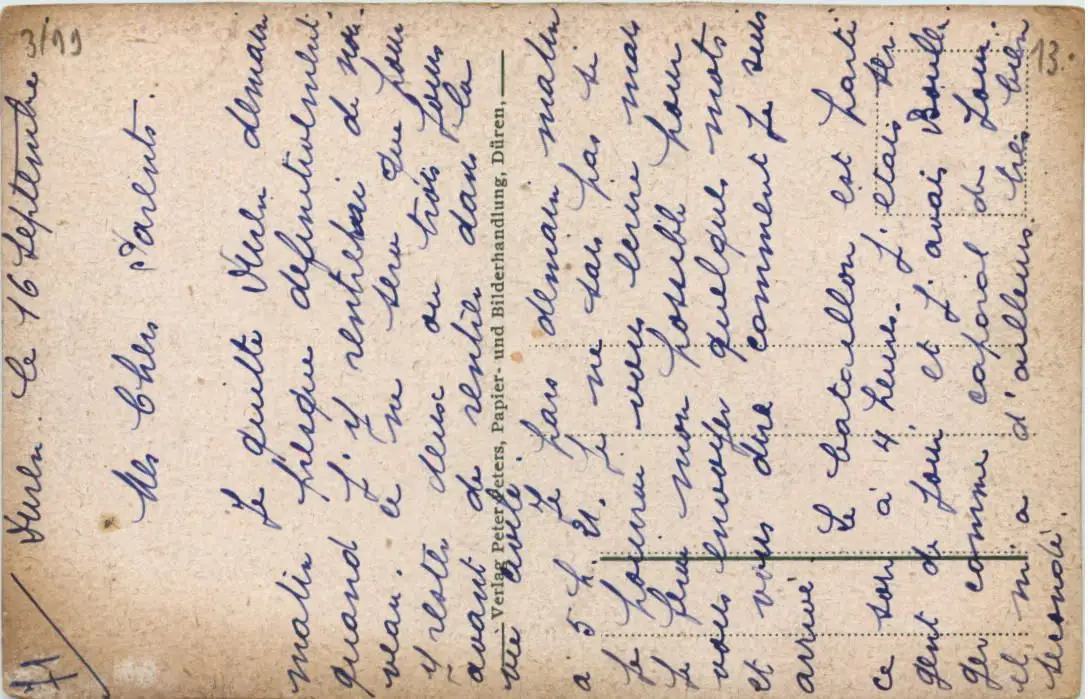 3/99
13.
71
Duren le 16 Septembre
Mes Chers Parents.
Je quitte Duren demain
matin presque definitivement
quand j'y rentrerai de nou-
veau. ce ne sera que pour
y rester deux ou trois jours
avant de rentrer dans la
vie civile.
Verlag Peter Peters, Papier- und Bilderhandlung, Düren,
Je pars demain matin
a 5 h. 21. je ne sais pas si
je pourrai vous ecrire mais
je ferai mon possible pour
vous envoyer quelques mots
et vous dire comment je suis
arrivé.
Le bataillon est parti
ce soir à 4 heures. J'etais ser
gent de jour et j'avais Boulli
ger comme caporal de jour.
il m'a d'ailleurs très bien
secondé.